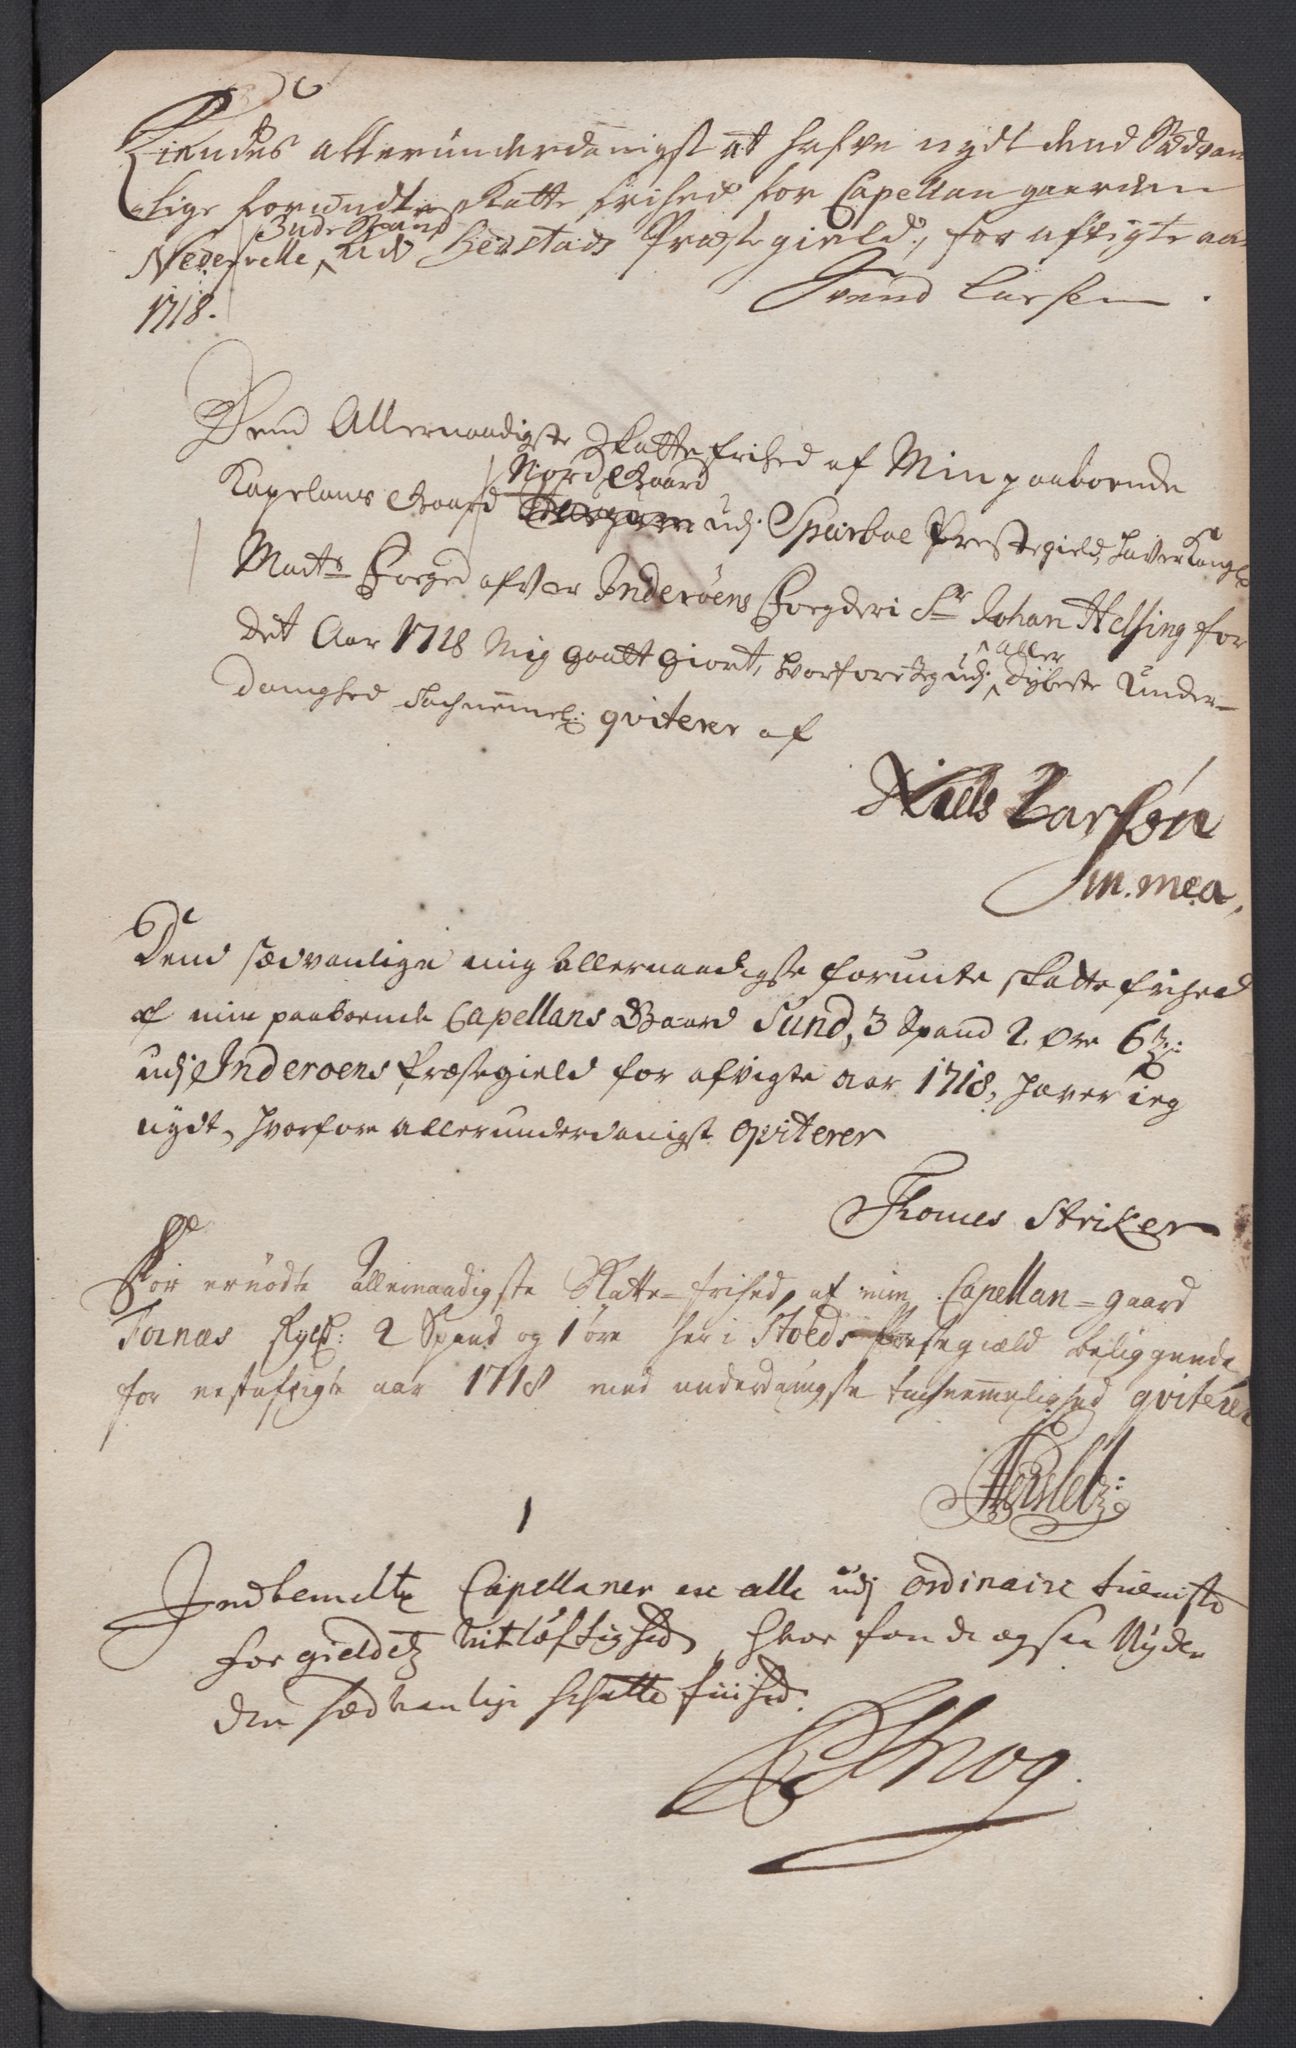 Kiendes allerunderdanigst at hafve nydt dend Sædvan
lige forundte skatte frihed for Capellan gaarden
Nedervelle udj Beestads Præstegield, for afvigte aar
1718.
Svend Larsen
Dend Allernaadigste Skatte frihed af Min paaboende
Kapelans Gaard Nord Gaard udj Sparboe Prestegield, haver Kongl
Mayts Foged ofver Inderøens Fogderi Sr Johan Helsing for
det Aar 1718 Mig gaatt giort, hvorfore ieg udj aller dybeste Under-
danighed tachnemel: qviterer af
Niels Larsøn
m. mea,
Dend sædvanlige mig allernaadigste forunte skatte frihed
af min paaboende Capellans Gaard Sund, 3 Spand 2 Øre 6
udj Inderoens Præstegield for afvigte aar 1718, haver ieg
nydt, hvorfore allerunderdanigst qviterer
Thomes Striker
For ernödte Allernaadigste Skatte-frihed, af min Capellan-gaard
Fornæs skyld: 2 Spand og 1 øre her i Stods Præstegiæld beliggende
for nestafvigte aar 1718 med underdanigste tachnemmelighed qviterer
Hersleb:
Indbemelte Capellaner ere alle udj ordinaire tieniste
for gieldetz vitløftighed, hvor for de ogsaa Nyder
den sædvanlige schatte friihed.
Schrog.